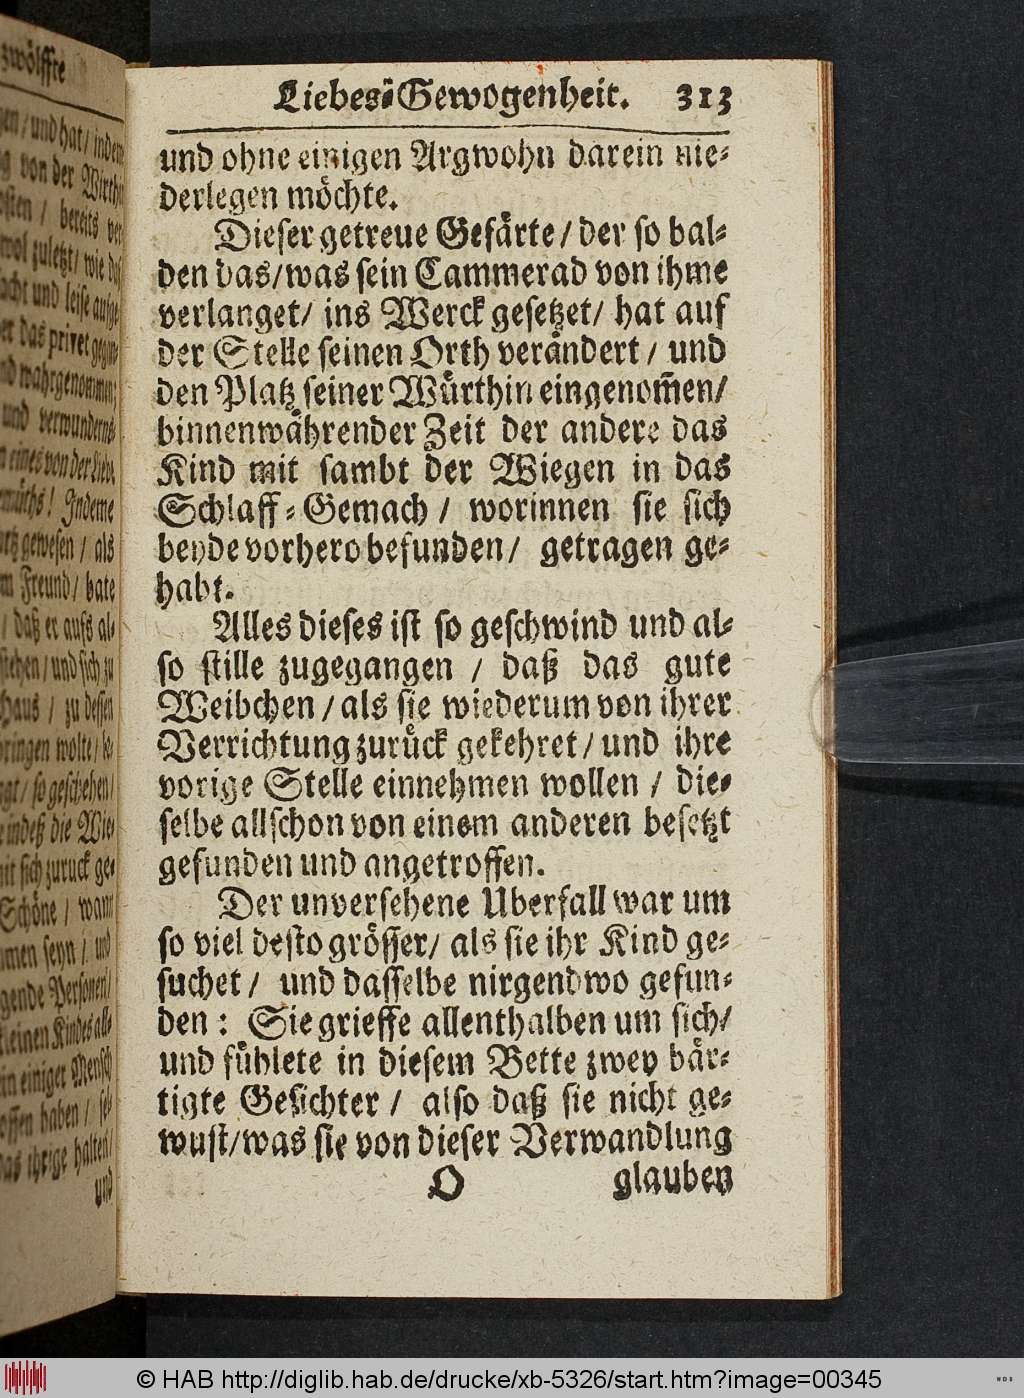 zwölffte
en / und hat / indeme
von der Wirthin
bereits ver
wol zuletzt / wie das
acht und leise aufge
er das privet gegan-
nd wahrgenommen;
und verwunderns-
eines von der Liebe
Indeme
gewesen / als
Freund / bate
/ daß er aufs al-
stehen / und sich zu
Haus / zu dessen
bringen wolte / be-
/ so geschehen /
indeß die Wie-
mit sich zuruck ge-
Schöne / wann
men seyn / und
gende Personen /
einen Kindes all-
einiger Mensch
haben / sel-
das ihrige halten /
und
Liebes-Gewogenheit. 313
und ohne einigen Argwohn darein nie-
derlegen möchte.
Dieser getreue Gefärte / der so bal-
den das / was sein Cammerad von ihme
verlanget / ins Werck gesetzet / hat auf
der Stelle seinen Orth verändert / und
den Platz seiner Würthin eingenom̃en /
binnenwährender Zeit der andere das
Kind mit sambt der Wiegen in das
Schlaff-Gemach / worinnen sie sich
beyde vorhero befunden / getragen ge-
habt.
Alles dieses ist so geschwind und al-
so stille zugegangen / daß das gute
Weibchen / als sie wiederum von ihrer
Verrichtung zurück gekehret / und ihre
vorige Stelle einnehmen wollen / die-
selbe allschon von einem anderen besetzt
gefunden und angetroffen.
Der unversehene Uberfall war um
so viel desto grösser / als sie ihr Kind ge-
suchet / und dasselbe nirgendwo gefun-
den : Sie grieffe allenthalben um sich /
und fühlete in diesem Bette zwey bär-
tigte Gesichter / also daß sie nicht ge-
wust / was sie von dieser Verwandlung
O glauben
© HAB http://diglib.hab.de/drucke/xb-5326/start.htm?image=00345